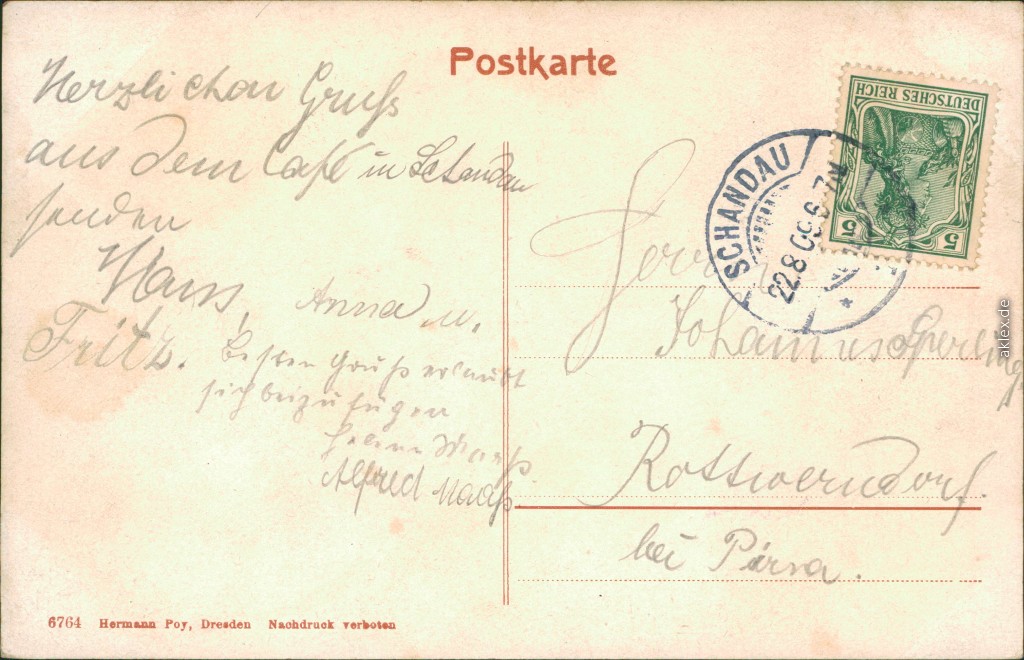 Postkarte
Herzlichen Gruß
aus dem Café in Schandau
senden
Hans,
Anna u.
Fritz.
Besten Gruß erlaubt
sich beizufügen
Helene Maaß
Alfred Maaß
DEUTSCHES REICH
5 5
SCHANDAU
22.8.09.6-7N
Herrn
Johannes Sperling
Rottwerndorf.
bei Pirna.
6764 Hermann Poy, Dresden Nachdruck verboten
aklex.de